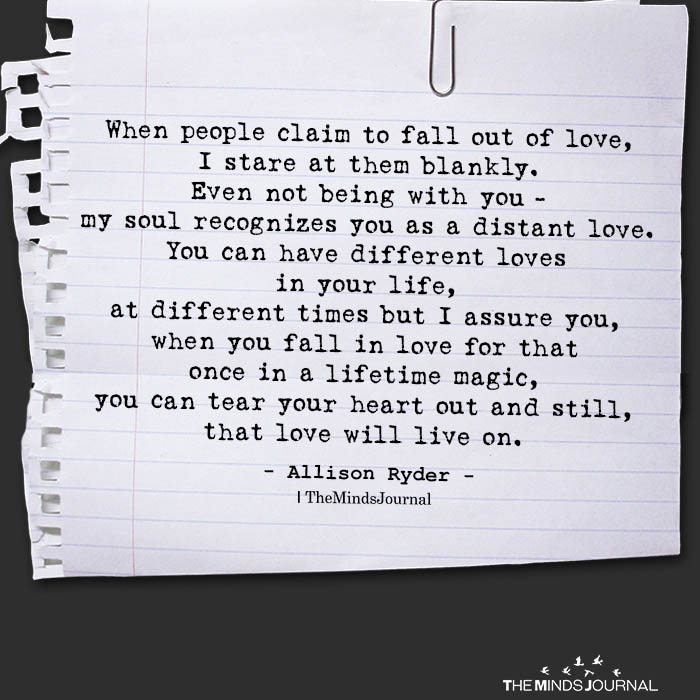 When people claim to fall out of love,
I stare at them blankly.
Even not being with you -
my soul recognizes you as a distant love.
You can have different loves
in your life,
at different times but I assure you,
when you fall in love for that
once in a lifetime magic,
you can tear your heart out and still,
that love will live on.
- Allison Ryder -
| TheMindsJournal
THEMINDSJOURNAL